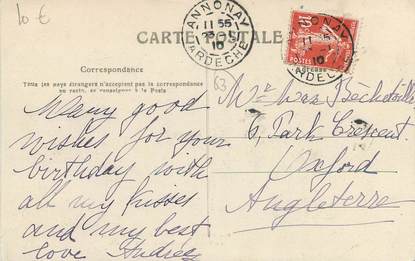 10 €
ANNONAY
11 55
10
ARDECHE
CARTE POSTALE
ANNONAY
10
ARDECHE
10
POSTES
Correspondance
Tous les pays étrangers n'acceptent pas la correspondance
au recto, se renseigner à la Poste
63
Many good
wishes for your
birthday with
all my kisses
and my best
love Andrée
Mr Max
6, Park Crescent
Oxford
Angleterre